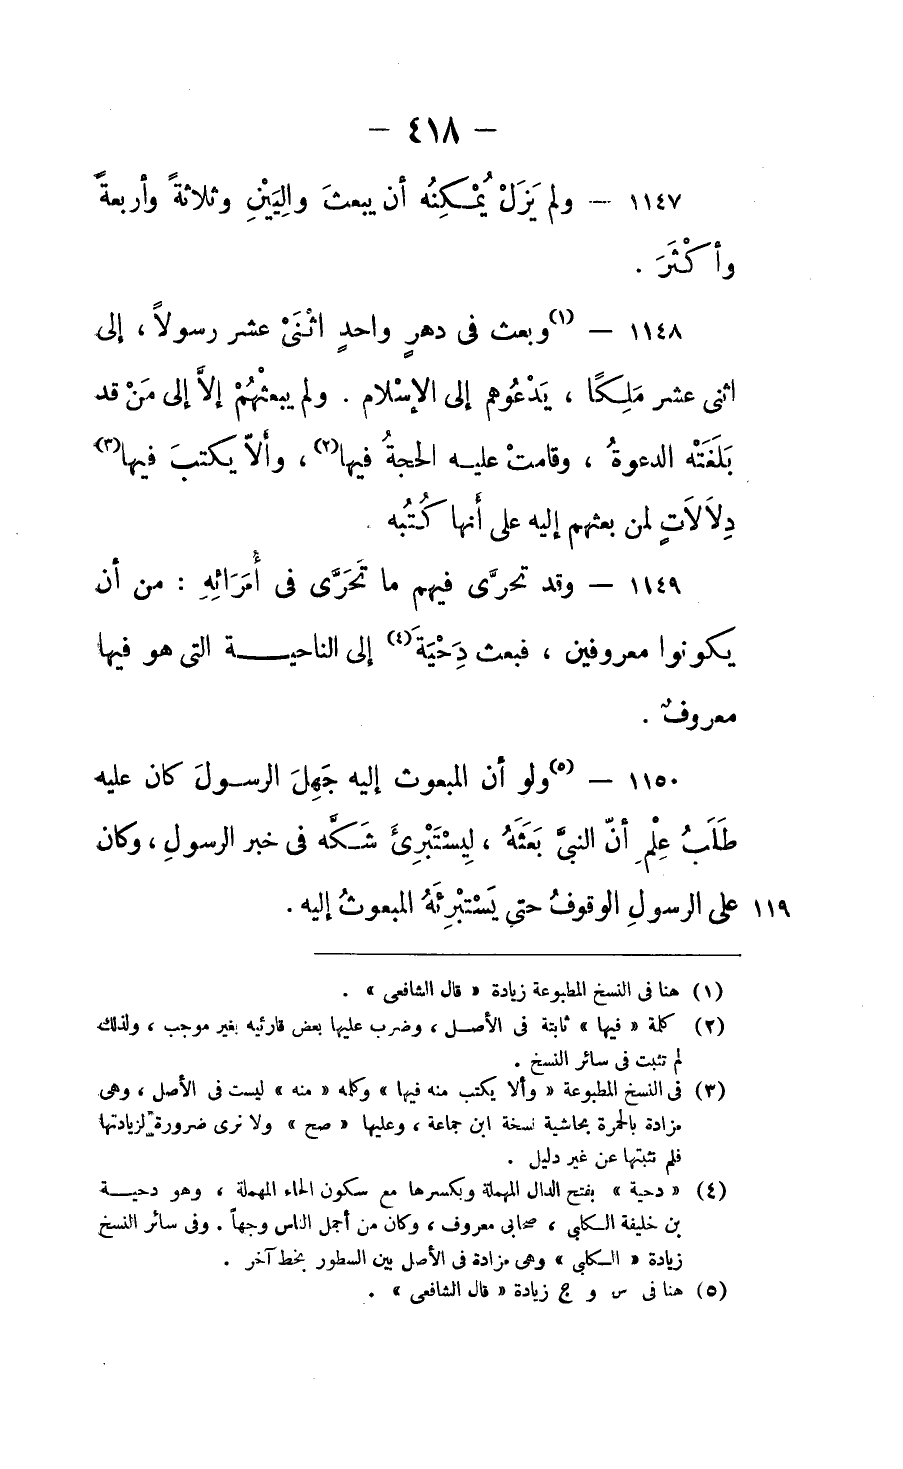 — ٤١٨ —
١١٤٧ — ولم يَزَلْ يُمْكِنُه أن يبعثَ والِيَيْنِ وثلاثةً وأربعةً
وأكْثَرَ .
١١٤٨ — (١)وبعث فى دهرٍ واحدٍ اثْنَىْ عشر رسولاً ، إلى
اثنى عشر مَلِكًا ، يَدْعُوهم إلى الإسْلام . ولم يبعثْهُمْ إلاَّ إلى مَنْ قد
بَلَغَتْه الدعوةُ ، وقامتْ عليه الحجةُ فيها(٢) ، وألاَّ يكتبَ فيها(٣)
دِلاَلاَتٍ لمن بعثهم إليه على أنها كُتُبه .
١١٤٩ — وقد تحرَّى فيهم ما تَحَرَّى فى أُمَرَائِهِ : من أن
يكونوا معروفين ، فبعث دَِحْيَةَ(٤) إلى الناحيـــة التى هو فيها
معروفٌ .
١١٥٠ — (٥)ولو أن المبعوث إليه جَهِلَ الرسولَ كان عليه
طَلَبُ عِلْمِ أنّ النبىَّ بَعَثَهُ ، لِيسْتَبْرِئَ شَكَّه فى خبر الرسولِ ، وكان
١١٩ على الرسولِ الوقوفُ حتى يَسْتَبْرِئَهُ المبعوثُ إليه .
(١) هنا فى النسخ المطبوعة زيادة « قال الشافعى » .
(٢) كلمة « فيها » ثابتة فى الأصل ، وضرب عليها بعض قارئيه بغير موجب ، ولذلك
لم تثبت فى سائر النسخ .
(٣) فى النسخ المطبوعة « وألا يكتب منه فيها » وكلمه « منه » ليست فى الأصل ، وهى
مزادة بالحمرة بحاشية نسخة ابن جماعة ، وعليها « صح » ولا نرى ضرورة لزيادتها
فلم نثبتها عن غير دليل .
(٤) « دحية » بفتح الدال المهملة وبكسرها مع سكون الحاء المهملة ، وهو دحيـة
بن خليفة الكلبي ، صحابى معروف ، وكان من أجمل الناس وجهاً . وفى سائر النسخ
زيادة « الكلبي » وهى مزادة فى الأصل بين السطور بخط آخر .
(٥) هنا فى س و ج زيادة « قال الشافعى » .